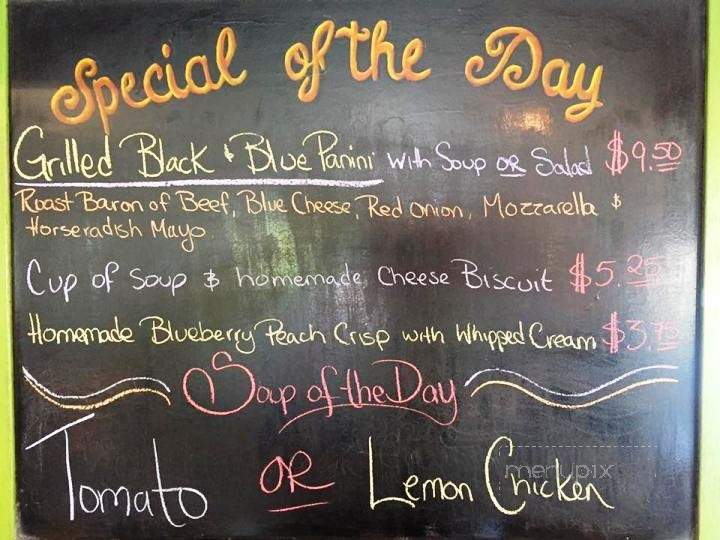 Special of the Day
Grilled Black & Blue Panini with Soup OR Salad $9.50
Roast Baron of Beef, Blue Cheese, Red Onion, Mozzarella &
Horseradish Mayo
Cup of Soup & homemade Cheese Biscuit $5.25
Homemade Blueberry Peach Crisp with Whipped Cream $3.75
Soup of the Day
Tomato OR Lemon Chicken
menupix